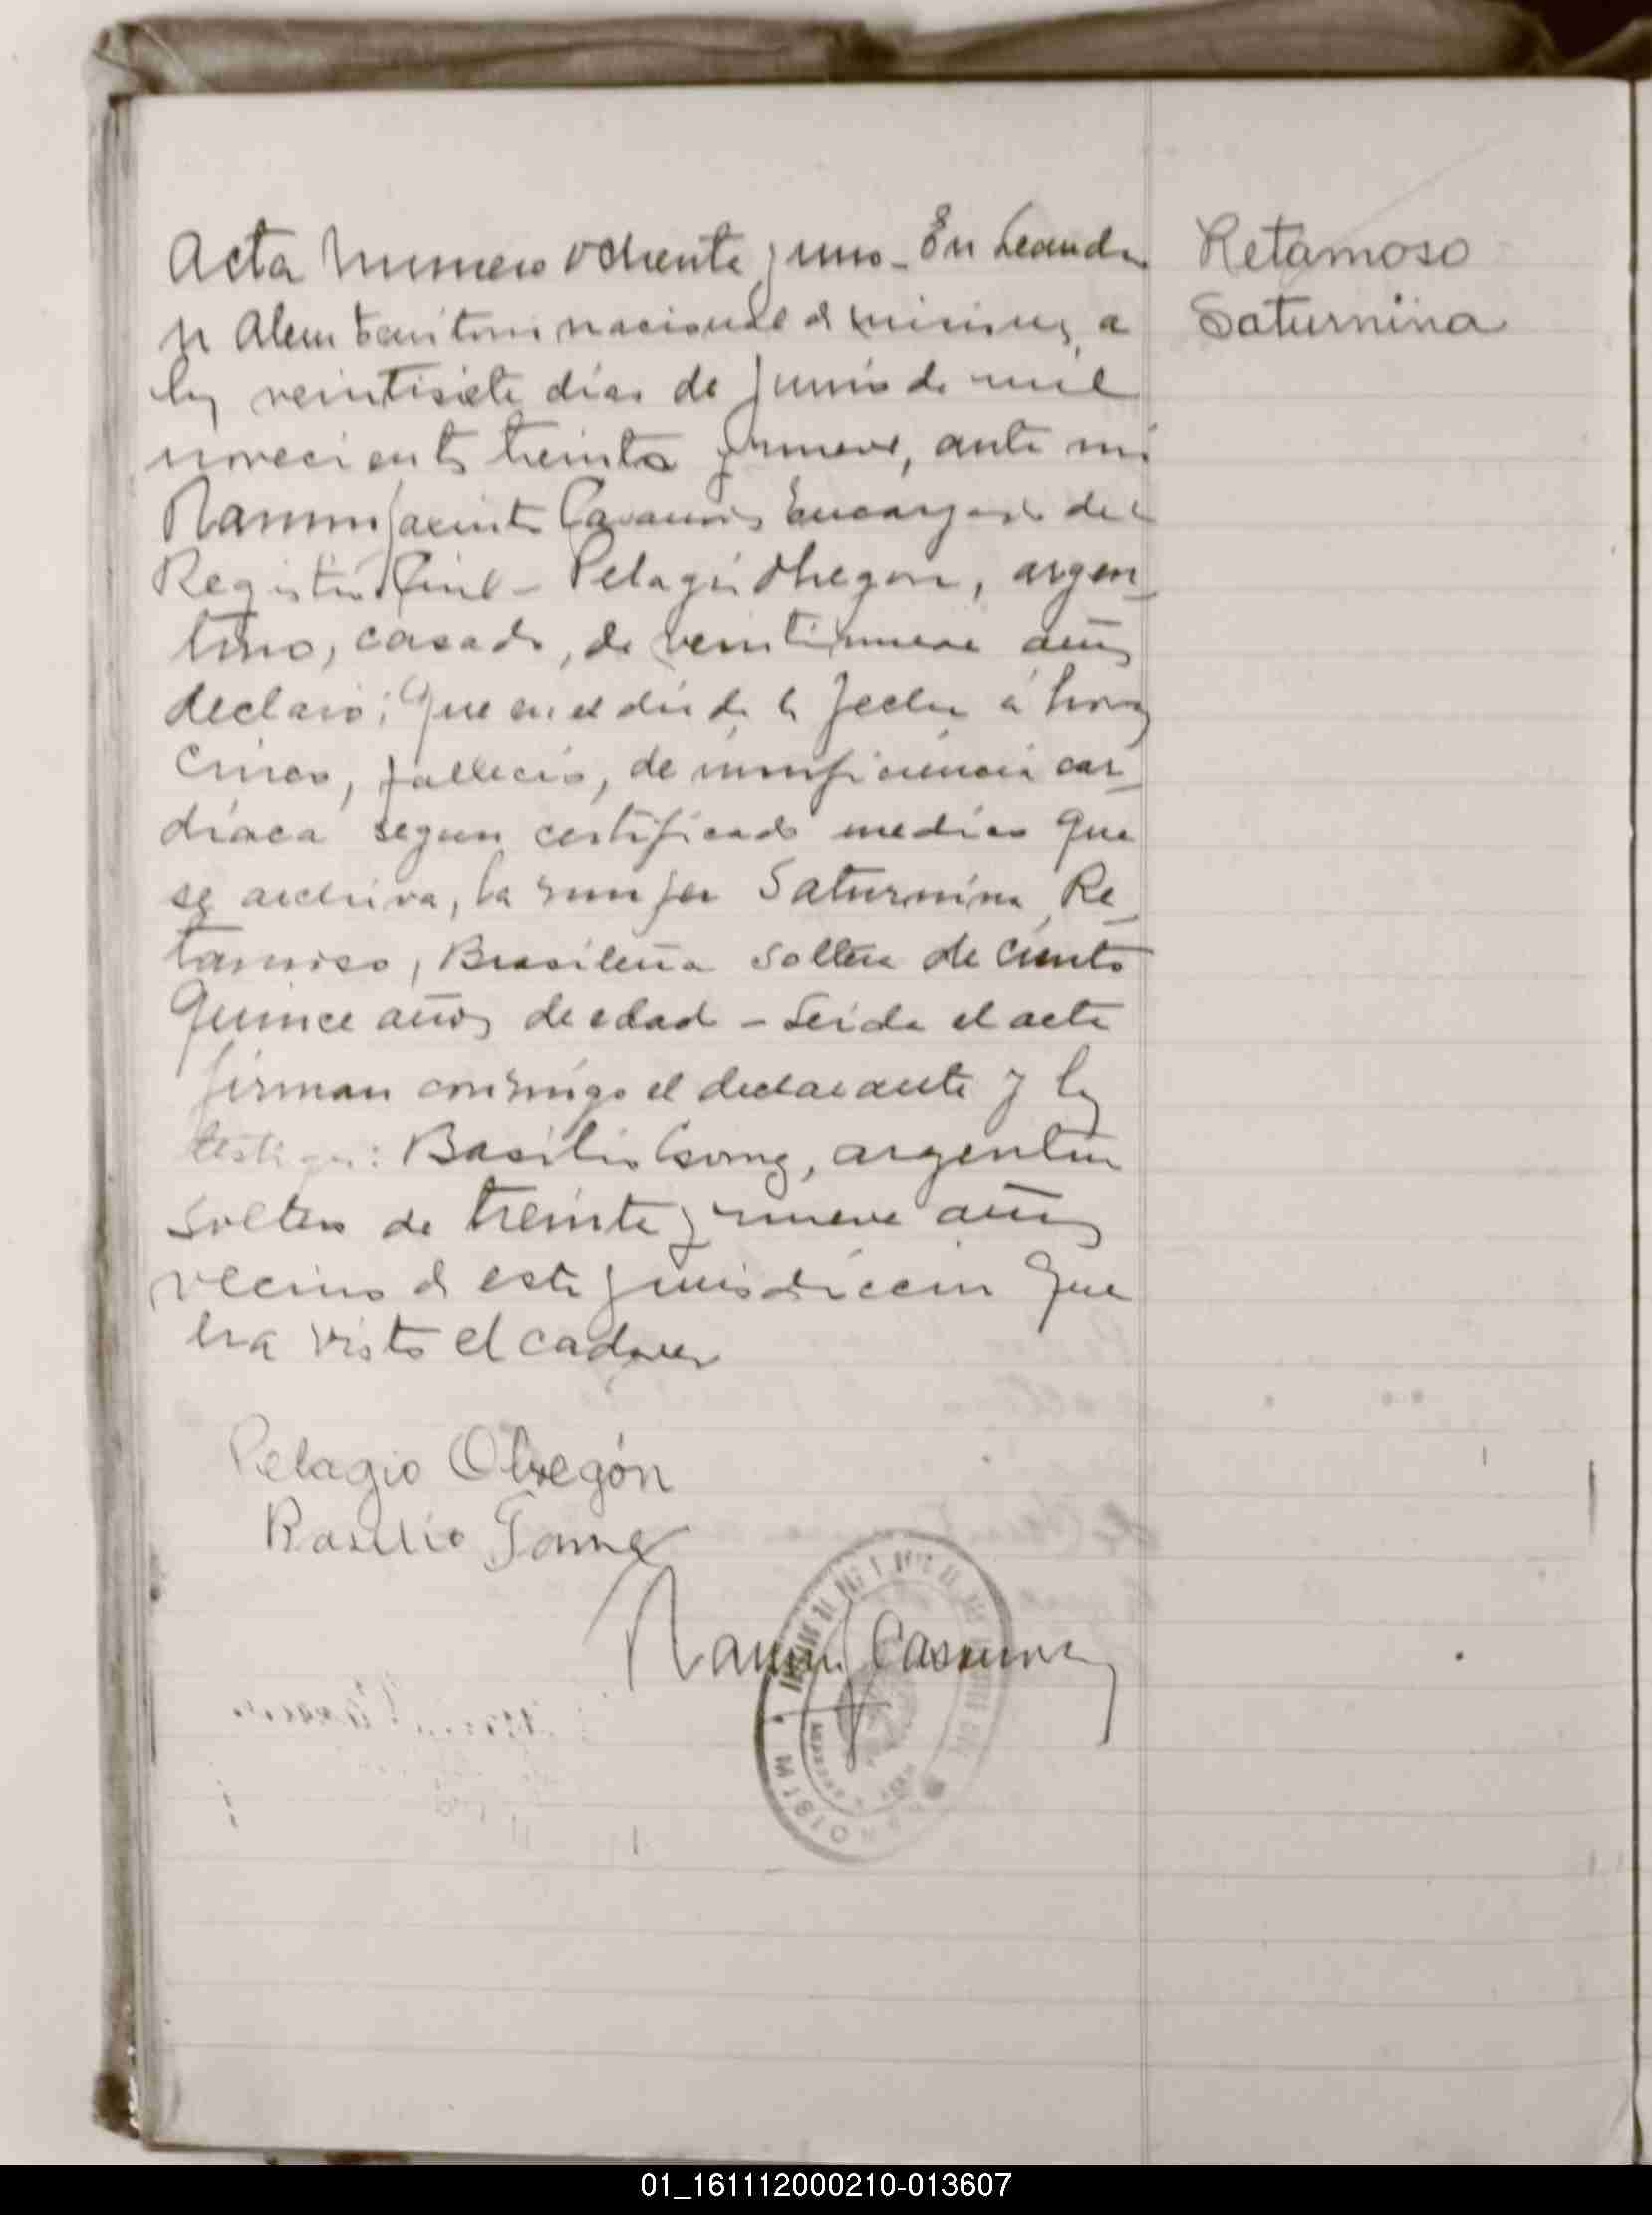 Acta Numero ochenta y uno - En Leandro
N Alem territorio nacional de misiones, a
los veintisiete dias de Junio de mil
novecientos treinta y nueve, ante mi
Ramon Jacinto Encargado del
Registro Civil - Pelagio Obregon, argen-
tino, casado, de veintinueve años
declaró; Que en el dia de la fecha á horas
Cinco, fallecio, de insuficiencia car-
díaca segun certificado medico que
se archiva, la mujer Saturnina Re-
tamoso, Brasileña soltera de ciento
quince años de edad - Leida el acta
firman conmigo el declarante y los
testigos: Basilio Gomez, argentino
soltero de treinta y nueve años
vecino de esta jurisdiccion que
ha visto el cadaver
Pelagio Obregón
Basilio Gomez
Ramon J
Retamoso
Saturnina
01_161112000210-013607